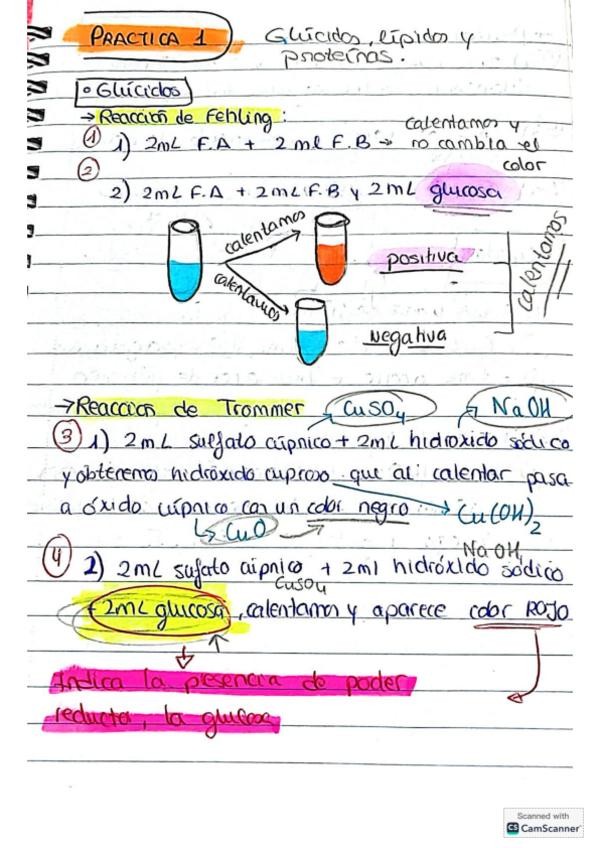 PRACTICA 1
Glúcidos, lípidos y
proteínas.
• Glúcidos
→ Reacción de Fehling:
calentamos y
① 1) 2mL F.A + 2ml F.B → no cambia el
color
②
2) 2mL F.A + 2mL F.B y 2mL glucosa
calentamos
calentamos
positiva
negativa
calentamos
→ Reacción de Trommer CuSO4 NaOH
③ 1) 2mL sulfato cúpnico + 2mL hidróxido sódico
y obtenemos hidróxido cuproso que al calentar pasa
a óxido cúpnico con un color negro → Cu(OH)2
↳ CuO
NaOH
④ 2) 2mL sufato cúpnico + 2ml hidróxido sódico
CuSO4
+ 2mL glucosa, calentamos y aparece color ROJO
Indica la presencia de poder
reductor, la glucosa
Scanned with
CS CamScanner